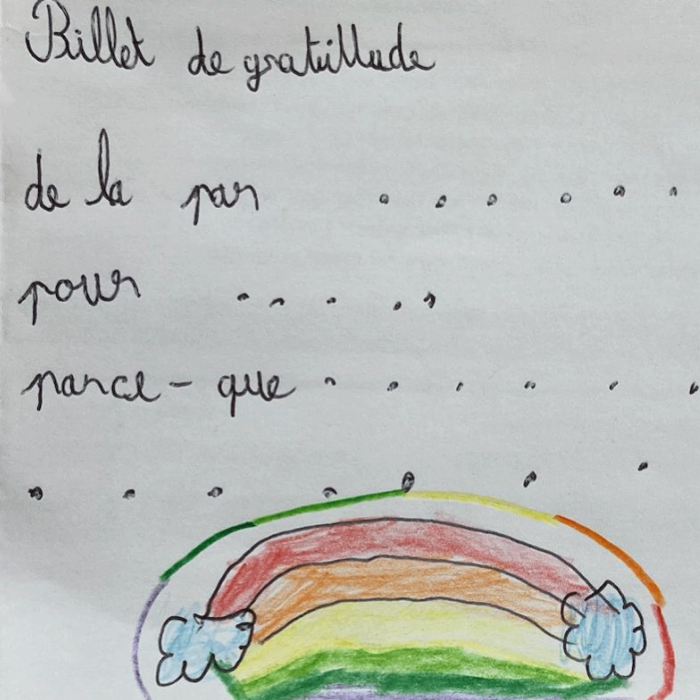 Billet de gratitude
de la par . . . . . .
pour . . . . .
parce-que . . . . . .
. . . . . . .